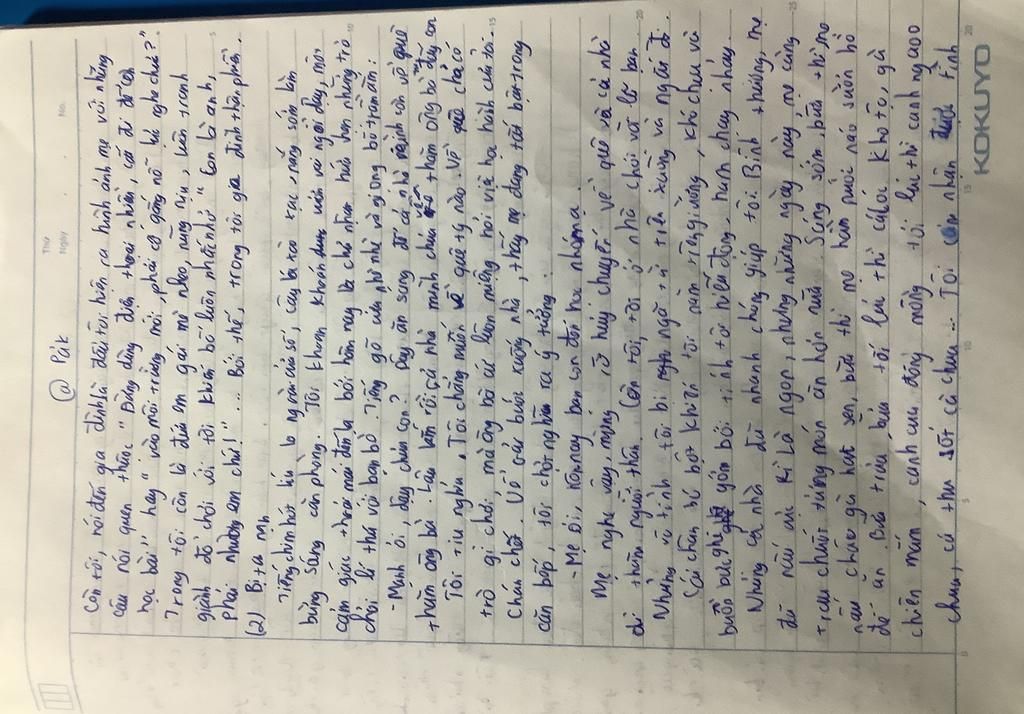 Thứ
Ngày
No.
@ Pák
Còn tôi, nói đến gia đình là đầu tôi hiện ra hình ảnh mẹ với những
câu nói quen thuộc "Đừng dùng điện thoại nhiều, cất đi để còn
học bài" hay "vào môi trường mới, phải cố gắng nỗ lực nghe chưa?"
Trong tôi còn là đứa em gái mè nheo, nũng nịu, luôn tranh
giành đồ chơi với tôi khiến bố luôn nhắc nhở "Con là anh,
phải nhường em chứ!"... Bởi thế, trong tôi gia đình thật phiền.
(2) Bị tra mh
Tiếng chim hót líu lo ngoài cửa sổ, cây lá xạc nắng sớm làm
bừng sáng căn phòng. Tôi khoan khoái vươn vai ngồi dậy, một
cảm giác thoải mái đến lạ bởi hôm nay là chủ nhật hứa hẹn những trò
chơi lí thú với bạn bè. Tiếng gõ cửa nhè nhẹ và giọng bố trầm ấm:
- Minh ơi, dậy chưa con? Dậy ăn sáng để cả nhà mình còn về quê
thăm ông bà. Lâu lắm rồi cả nhà mình chưa về thăm ông bà đấy con
Tôi tiu nghỉu. Tôi chẳng muốn về quê tý nào. Về quê chả có
trò gì chơi, mà ông bà cứ luôn miệng hỏi việc học hành của tôi.
Chán chết. Uể oải bước xuống nhà, thấy mẹ đang tất bật trong
căn bếp, tôi chợt nghĩ ra ý tưởng:
- Mẹ ơi, hôm nay bạn con đến học nhóm ạ.
Mẹ nghe vậy, mắng từ huỷ chuyến về quê và cả nhà
đi thăm người thân. Còn tôi, tôi ở nhà chơi với lũ bạn.
Nhưng vô tình tôi bị ngã và trẹo xuống và ngại đi.
Cái chân bó bột khiến tôi nằm trên giường, khó chịu và
buồn bực ghê gớm bởi tính tôi hiếu động, ham chạy nhảy.
Nhưng cả nhà đã nhanh chóng giúp tôi. Bình thường, mẹ
đã nấu ăn kĩ là ngon, nhưng những ngày này, mẹ càng
trau chuốt từng món ăn hơn nữa. Sáng sớm bữa thì mẹ
nấu cháo gà hạt sen, bữa thì mẹ hầm nước nấu sườn bò
để ăn. Bữa trưa bữa tối lúc thì cá lóc kho tộ, gà
chiên mắm, canh cua đồng mồng tơi, lúc thì canh ngao
chua, cá thu sốt cà chua... Tôi cảm nhận được tình
KOKUYO